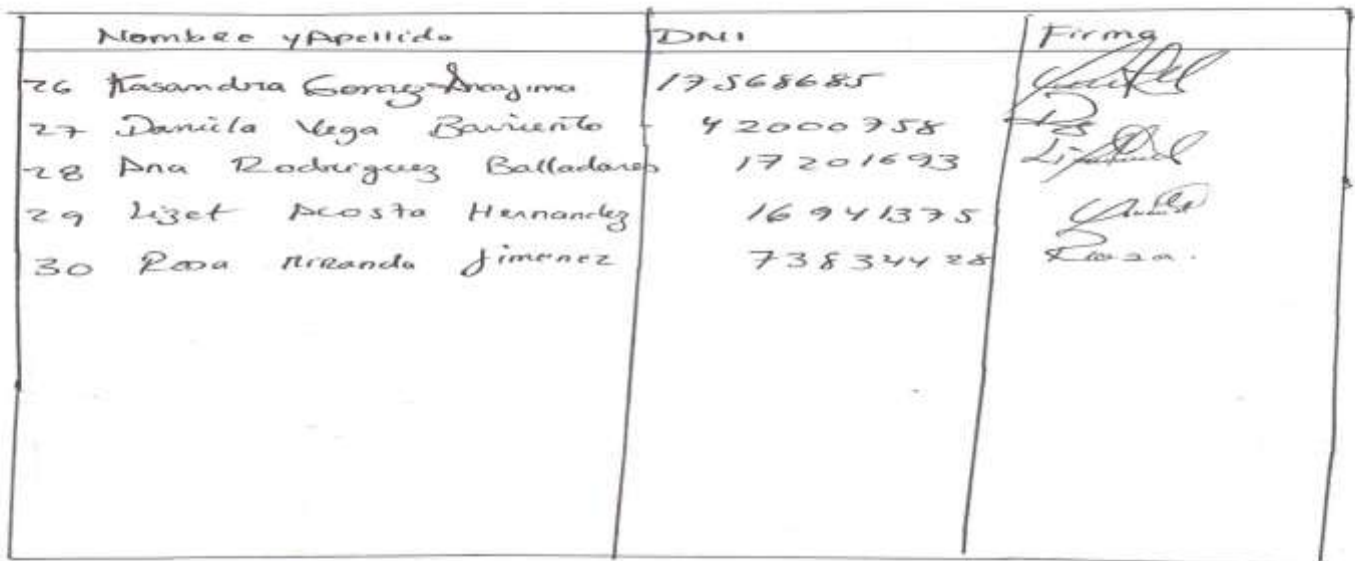 Nombre y Apellido DNI Firma
26 Kasandra Gomez 17568685
27 Daniela Vega Barriento - 42000758
28 Ana Rodriguez Balladares 17201693
29 Lizet Acosta Hernandez 16941375
30 Rosa Miranda Jimenez 73834428 Rosa.